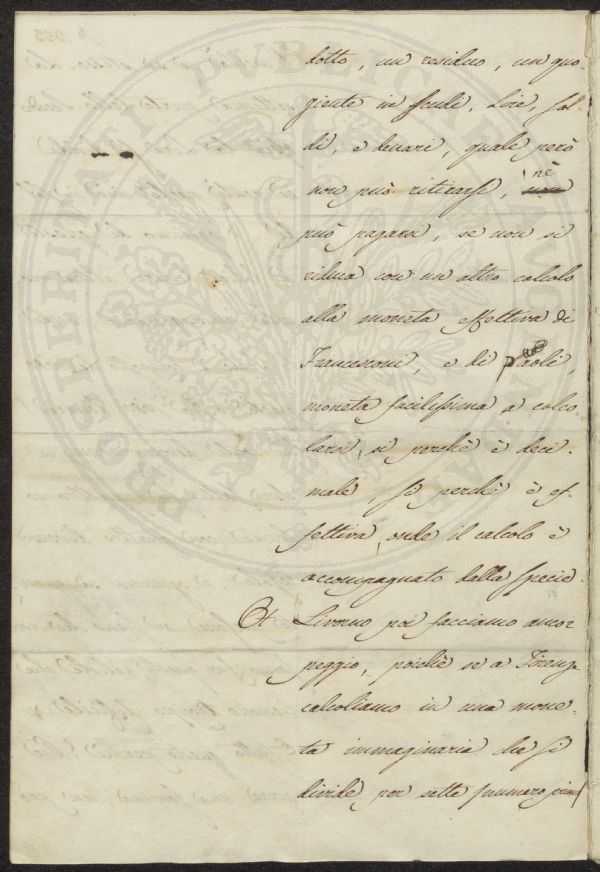 dotto, un residuo, un quo-
ziente in scudi, Lire, sol-
di, e denari, quale però
non può ritirarsi, nè
può pagarsi, se non si
riduca con un altro calcolo
alla moneta effettiva di
Francesconi, e di Paoli,
moneta facilissima a calco-
larsi, sì perchè è deci-
male, sì perchè è ef-
fettiva, onde il calcolo è
accompagnato dalla specie.
A Livorno poi facciamo ancor
peggio, poichè se a Firenze
calcoliamo in una mone-
ta immaginaria che si
divide per sette numero primo